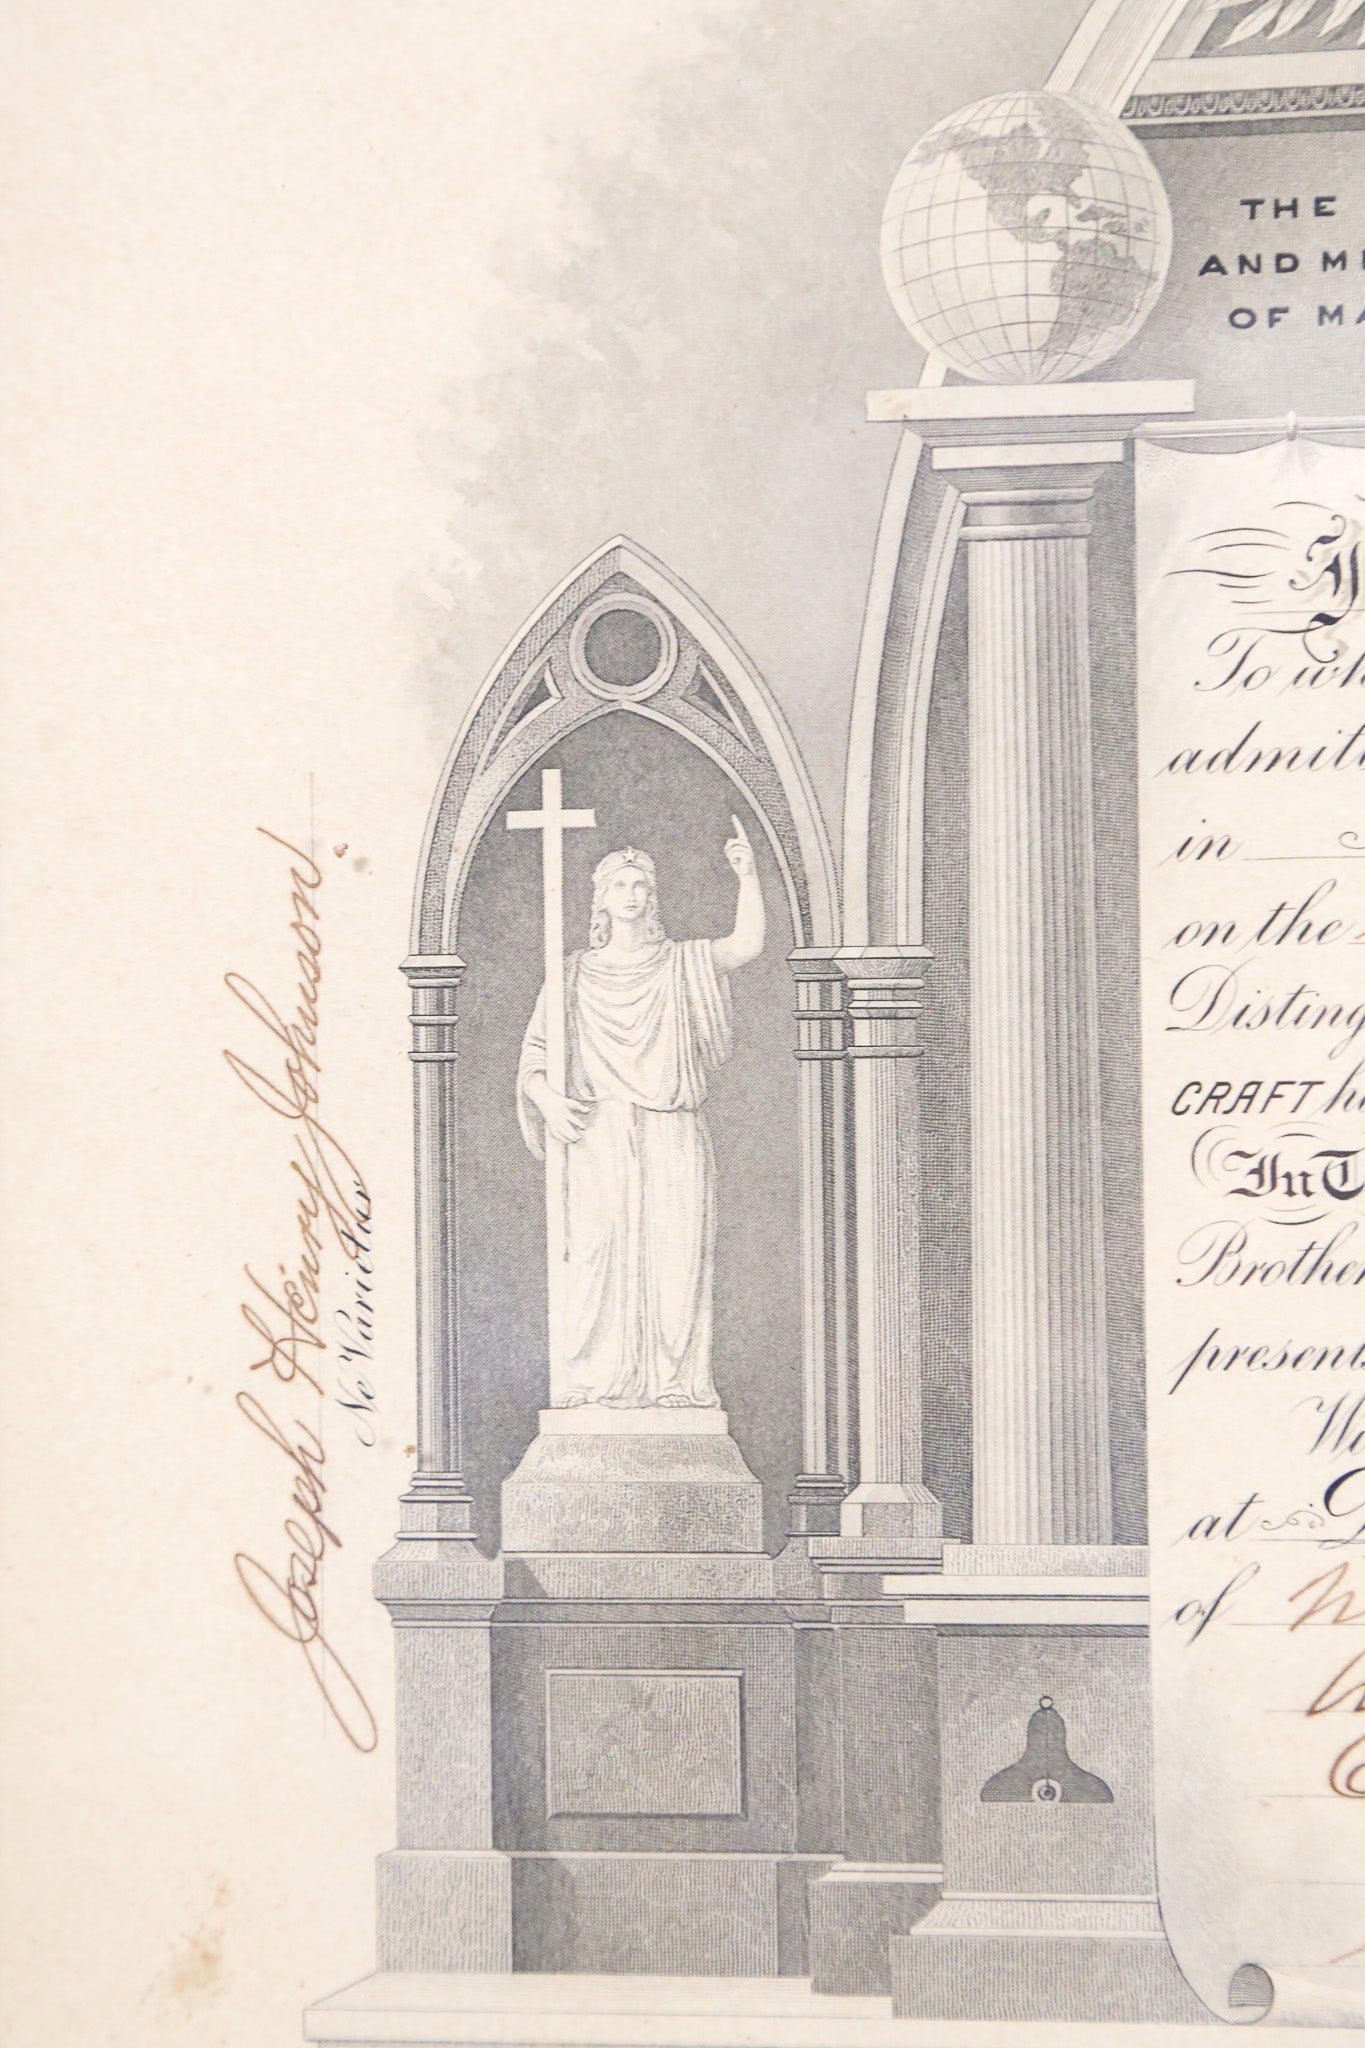 THE
AND M
OF MA
To wh
admit
in
on the
Disting
CRAFT ha
In T
Brother
presents
at
of
Joseph Henry Johnson
Ne Varietur